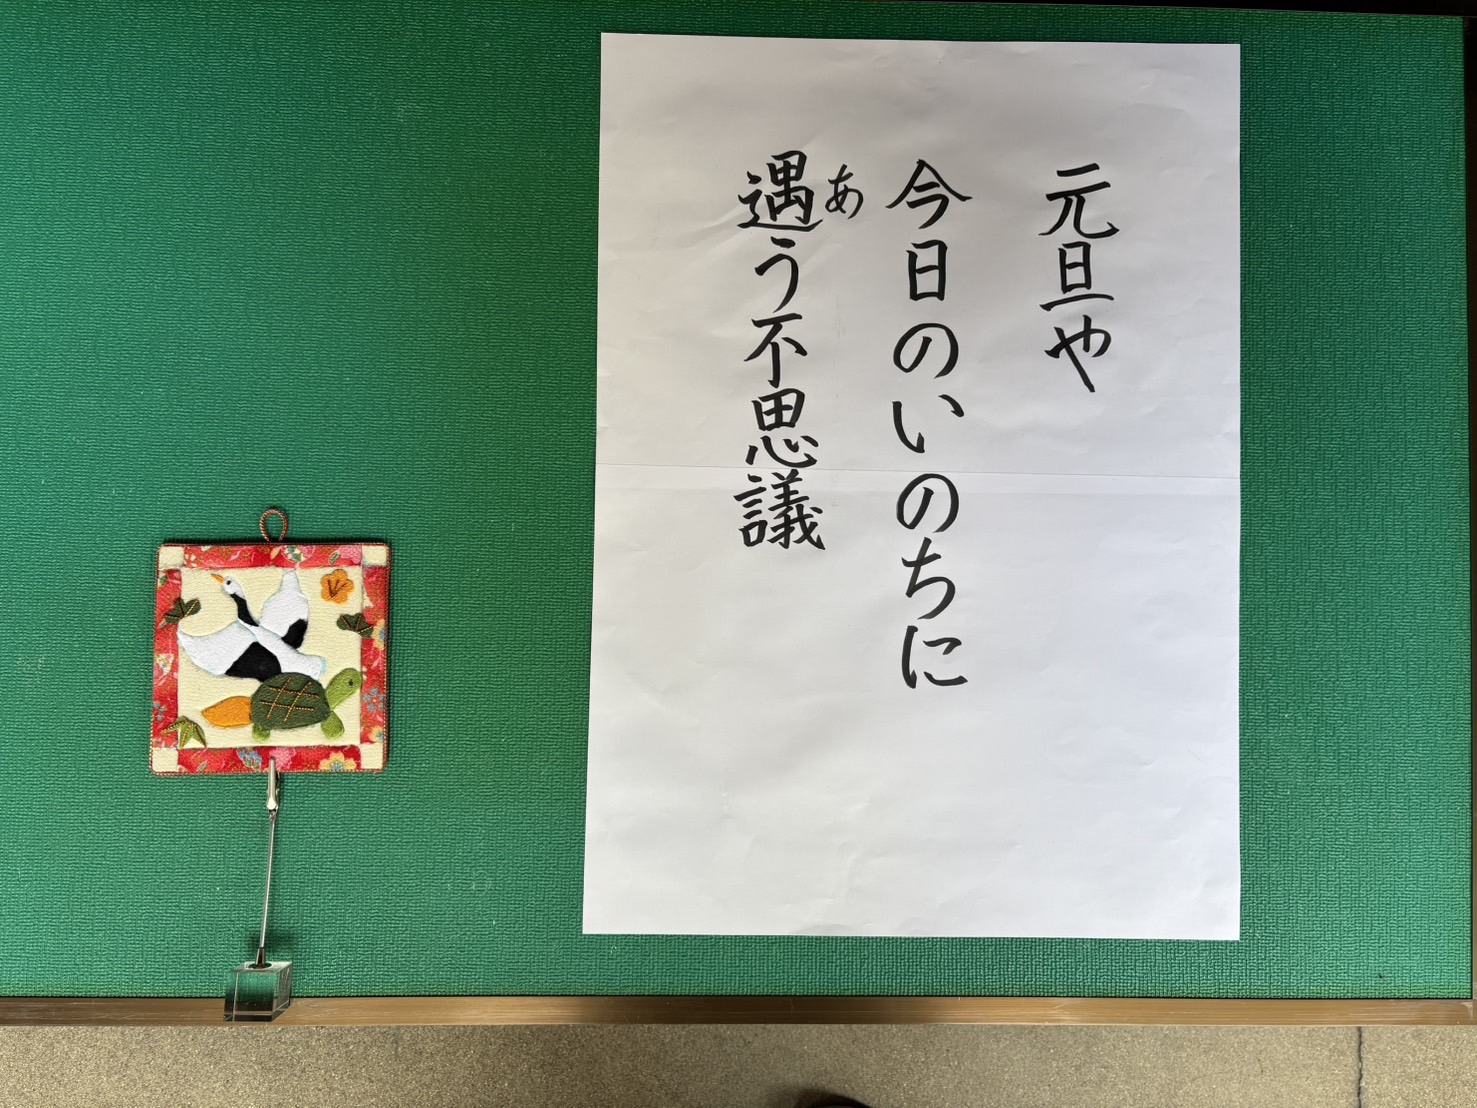 元旦や
今日のいのちに
遇う不思議
あ